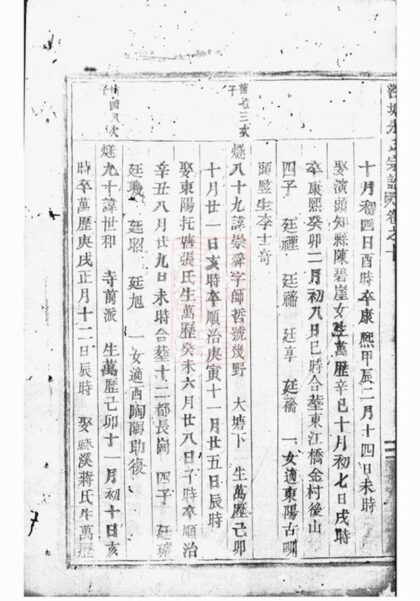 宗譜卷之十
十月初四日酉時卒康熙甲辰二月十四日未時
娶演頭知縣陳碧崖女生萬歷辛巳十月初七日戌時
卒康熙癸卯二月初八日巳時合塟東江橋金村後山
四子 廷 廷 廷享 廷 一女適東陽古
頭監生李士奇
八十九諱崇舜字師哲號幾野 大塘下 生萬歷己卯
十月廿一日亥時卒順治庚寅十一月廿五日辰時
娶東陽托塘張氏生萬歷癸未六月廿八日子時卒順治
辛丑八月廿九日未時合塟十二都長崗 四子 廷
廷 廷昭 廷旭 一女適酉陶陶助後
九十諱世和 寺前派 生萬歷己卯十一月初十日亥
時卒萬歷庚戌正月十二日辰時 娶 溪蔣氏生萬歷
七三次子
八次子